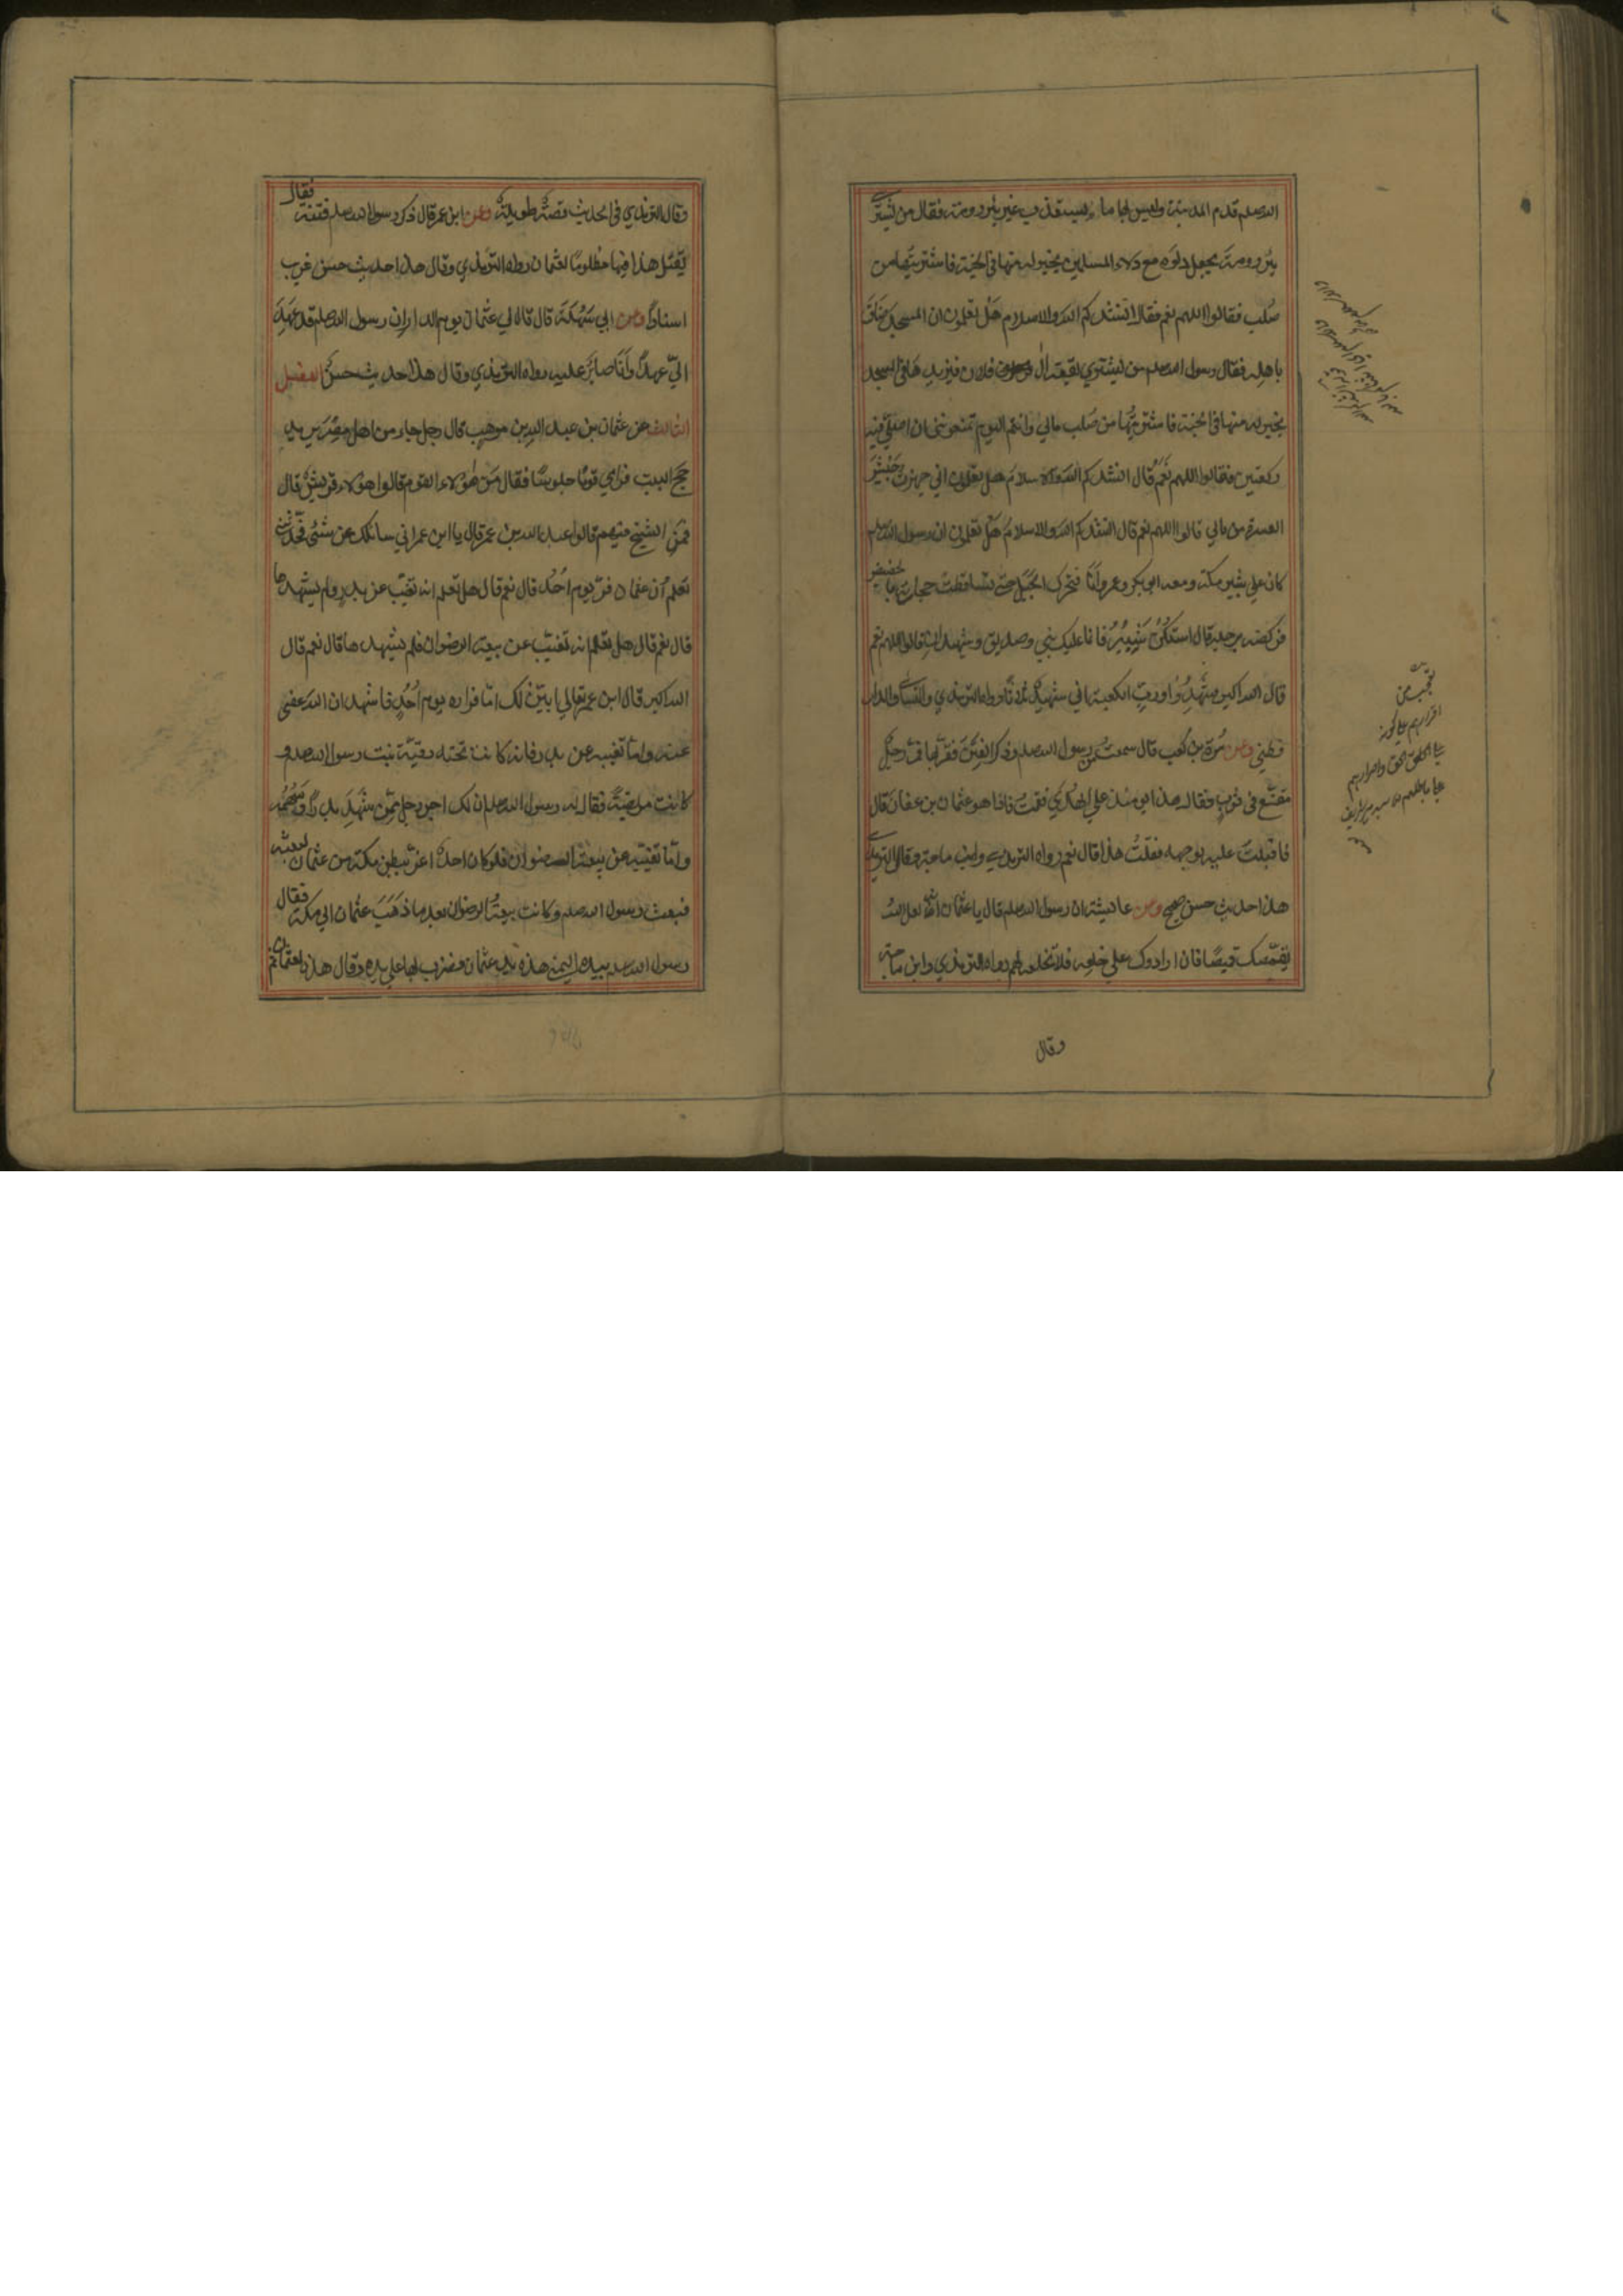 الله صلعم قدم المدينة وليس بها ماء يستعذب غير بئر رومة فقال من يشتري
بئر رومة يجعل دلوه مع دلاء المسلمين بخير له منها في الجنة فاشتريتها من
صلب فقالوا اللهم نعم فقال انشدكم الله والاسلام هل تعلمون ان المسجد ضاق
باهله فقال رسول الله صلعم من يشتري بقعة ال فلان فيزيدها في المسجد
بخير له منها في الجنة فاشتريتها من صلب مالي وانتم اليوم تمنعونني ان اصلي فيه
ركعتين فقالوا اللهم نعم قال انشدكم الله والاسلام هل تعلمون اني جهزت جيش
العسرة من مالي قالوا اللهم نعم قال انشدكم الله والاسلام هل تعلمون ان رسول الله صلعم
كان علي ثبير مكة ومعه ابي بكر وعمر وانا فتحرك الجبل حتى تساقطت حجارته بالحضيض
فركضه برجله قال اسكن ثبير فانما عليك نبي وصديق وشهيدان قالوا اللهم نعم
قال الله اكبر شهدوا ورب الكعبة اني شهيد ثلاثا رواه الترمذي والنسائي والدار
قطني وعن مرة بن كعب قال سمعت من رسول الله صلعم وذكر الفتن فقربها فمر رجل
مقنع في ثوب فقال هذا يومئذ علي الهدي فقمت فاذا هو عثمان بن عفان قال
فاقبلت عليه بوجهه فقلت هذا قال نعم رواه الترمذي وابن ماجة وقال الترمذي
هذا حديث حسن صحيح وعن عايشة ان رسول الله صلعم قال يا عثمان انه لعل الله
يقمصك قميصا فان ارادوك علي خلعه فلا تخلعه لهم رواه الترمذي وابن ماجة
وقال
وقال الترمذي في الحديث قصة طويلة وعن ابن عمر قال ذكر رسول الله صلعم فتنة فقال
يقتل هذا فيها مظلوما لعثمان رواه الترمذي وقال هذا حديث حسن غريب
اسنادا وعن ابي سهلة قال قال لي عثمان يوم الدار ان رسول الله صلعم قد عهد
الي عهدا وانا صابر عليه رواه الترمذي وقال هذا حديث حسن الفصل
الثالث عن عثمان بن عبد الله بن موهب قال رجل جاء من اهل مصر يريد
حج البيت فراي قوما جلوسا فقال من هؤلاء القوم قالوا هؤلاء قريش قال
فمن الشيخ فيهم قالوا عبد الله بن عمر قال يا ابن عمر اني سائلك عن شئ فحدثني
تعلم ان عثمان فر يوم احد قال نعم قال هل تعلم انه تغيب عن بدر ولم يشهدها
قال نعم قال هل تعلم انه تغيب عن بيعة الرضوان فلم يشهدها قال نعم قال
الله اكبر قال ابن عمر تعالي ابين لك اما فراره يوم احد فاشهد ان الله عفى
عنه واما تغيبه عن بدر فانه كانت تحته رقية بنت رسول الله صلعم و
كانت مريضة فقال له رسول الله صلعم ان لك اجر رجل ممن شهد بدرا وسهمه
واما تغيبه عن بيعة الرضوان فلو كان احد اعز ببطن مكة من عثمان لبعثه
فبعث رسول الله صلعم وكانت بيعة الرضوان بعد ما ذهب عثمان الي مكة فقال
رسول الله صلعم بيده اليمنى هذه يد عثمان فضرب بها علي يده وقال هذه لعثمان ثم